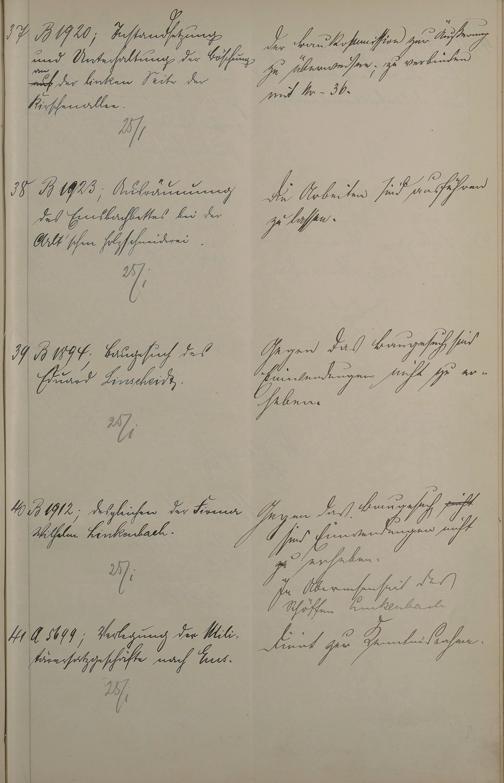 37 B 1920; Instandsetzung
und Unterhaltung der Böschung
an
auf der linken Seite der
Kirschenallee.
25/1
der Baukommission zur Äußerung
zu überweisen; zu verbinden
mit Nr. 36.
38 B 1923; Ausräumung
des Emsbachbettes bei der
Arlt'schen Holzschneiderei.
25/1
Die Arbeiten sind ausführen
zu lassen.
39 B 1894. Baugesuch des
Eduard Linscheidt.
25/1
Gegen das Baugesuch sind
Einwendungen nicht zu er-
heben.
40 B 1912; desgleichen der Firma
Wilhelm Linkenbach.
25/1
Gegen das Baugesuch nicht
sind Einwendungen nicht
zu erheben.
In Abwesenheit des
Schöffen Linkenbach
41 A. 5699; Verlegung der Mili-
tärersatzgeschäfte nach Ems.
25/1
Dient zur Kenntnisnahme.